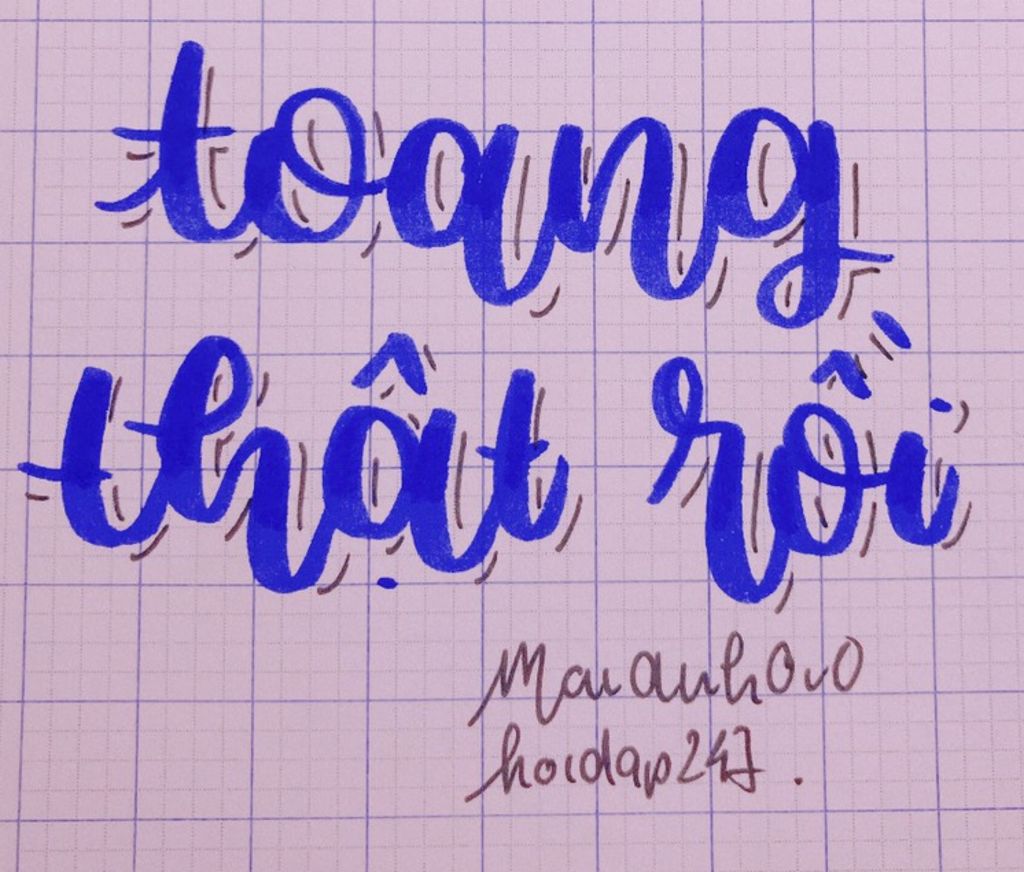 toang
thật rồi
Maianh0v0
hoidap247.